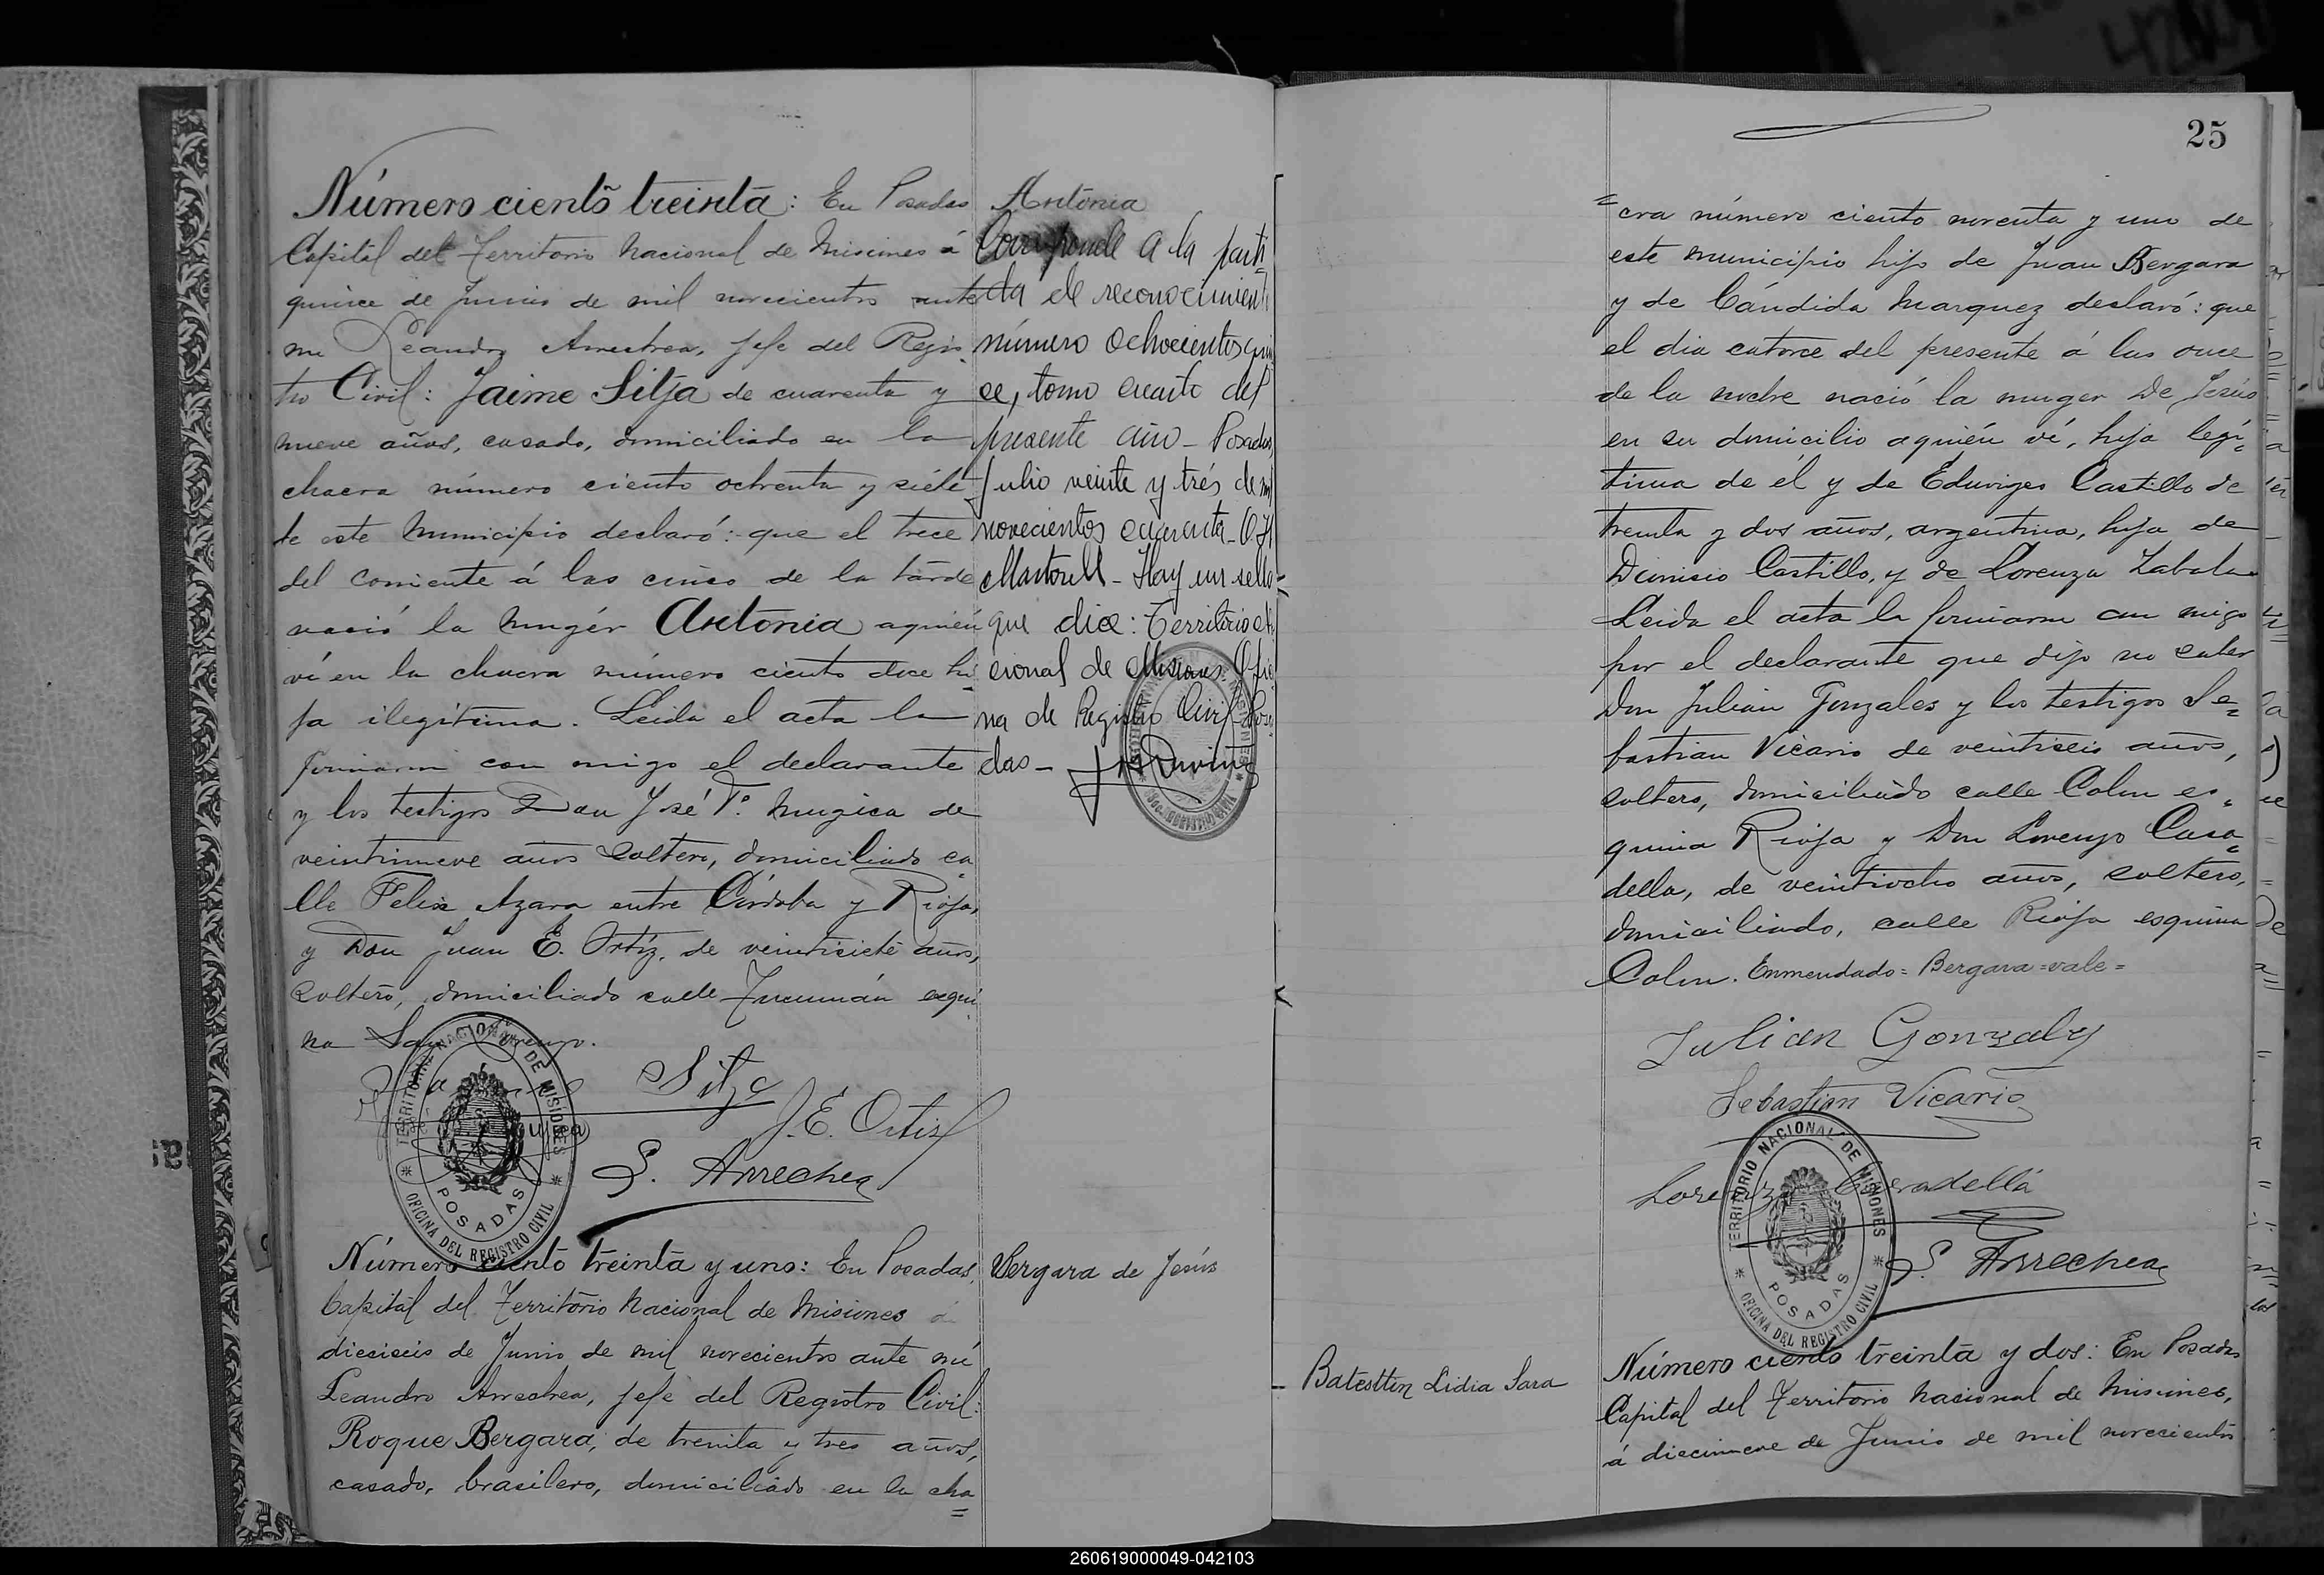 Número ciento treinta: En Posadas
Capital del Territorio Nacional de Misiones á
quince de Junio de mil novecientos ante
mi Leandro Arrechea, Jefe del Regis
tro Civil: Jaime Silja de cuarenta y
nueve años, casado, domiciliado en la
chacra número ciento ochenta y siete
de este Municipio declaró: que el trece
del corriente á las cinco de la tarde
nació la muger Antonia aquién
ví en la chacra número ciento doce hi
ja ilegítima. Leida el acta la
firmaron con migo el declarante
y los testigos Don José Fo. Mugica de
veintinueve años soltero, domiciliado ca
lle Felix Azara entre Córdoba y Rioja,
y Don Juan E. Ortíz, de veintisiete años,
soltero, domiciliado calle Tucumán esqui
na San Lorenzo.
Antonia
Corresponde a la parti
da de reconocimient
número ochocientos quin
ce, tomo cuarto del
presente año - Posadas
Julio veinte y trés de mil
novecientos cuarenta - O. H.
Martorell - Hay un sello
que dice: Territorio
cional de Misiones. Ofici
na de Registro Civil - Posa
das -
Silja
J. E. Ortiz
L. Arrechea
TERRITORIO NACIONAL DE MISIONES
OFICINA DEL REGISTRO CIVIL
POSADAS
Número ciento treinta y uno: En Posadas,
Capital del Territorio Nacional de Misiones á
dieciseis de Junio de mil novecientos ante mí
Leandro Arrechea, Jefe del Registro Civil:
Roque Bergara, de treinta y tres años,
casado, brasilero, domiciliado en la cha
Bergara de Jesús
25
cra número ciento noventa y uno de
este municipio hijo de Juan Bergara
y de Cándida Marquez declaró: que
el dia catorce del presente á las once
de la noche nació la muger De Jesús
en su domicilio aquién ví, hija legí
tima de él y de Eduviges Castillo de
treinta y dos años, argentina, hija de
Dionisio Castillo, y de Lorenza Zabala
Leida el acta la firmaron con migo
por el declarante que dijo no saber
Don Julian Gonzales y los testigos Se
bastian Vicario de veintiseis años,
soltero, domiciliado calle Colon es
quina Rioja y Don Lorenzo Casa
della, de veintiocho años, soltero,
domiciliado, calle Rioja esquina
Colon. Enmendado = Bergara = vale =
Julian Gonzalez
Sebastian Vicario
Lorenzo Casadella
L. Arrechea
TERRITORIO NACIONAL DE MISIONES
OFICINA DEL REGISTRO CIVIL
POSADAS
Batesttin Lidia Sara
Número ciento treinta y dos: En Posadas
Capital del Territorio Nacional de Misiones,
á diecinueve de Junio de mil novecientos
260619000049-042103